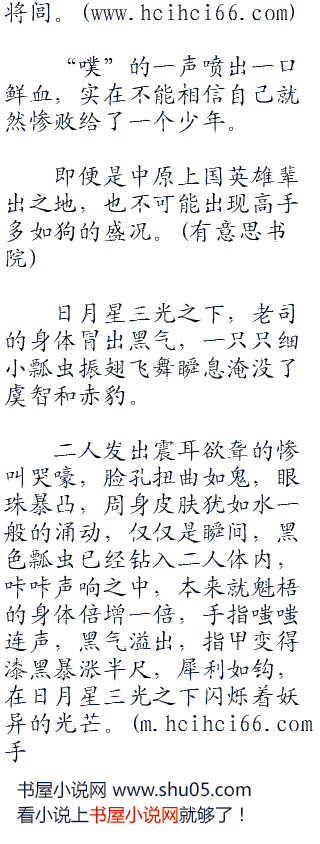 将闾。(www.hcihci66.com)
“噗”的一声喷出一口
鲜血，实在不能相信自己就
然惨败给了一个少年。
即便是中原上国英雄辈
出之地，也不可能出现高手
多如狗的盛况。(有意思书
院)
日月星三光之下，老司
的身体冒出黑气，一只只细
小瓢虫振翅飞舞瞬息淹没了
虞智和赤豹。
二人发出震耳欲聋的惨
叫哭嚎，脸孔扭曲如鬼，眼
珠暴凸，周身皮肤犹如水一
般的涌动，仅仅是瞬间，黑
色瓢虫已经钻入二人体内，
咔咔声响之中，本来就魁梧
的身体倍增一倍，手指嗤嗤
连声，黑气溢出，指甲变得
漆黑暴涨半尺，犀利如钩，
在日月星三光之下闪烁着妖
异的光芒。(m.hcihci66.com
手
书屋小说网 www.shu05.com
看小说上书屋小说网就够了！